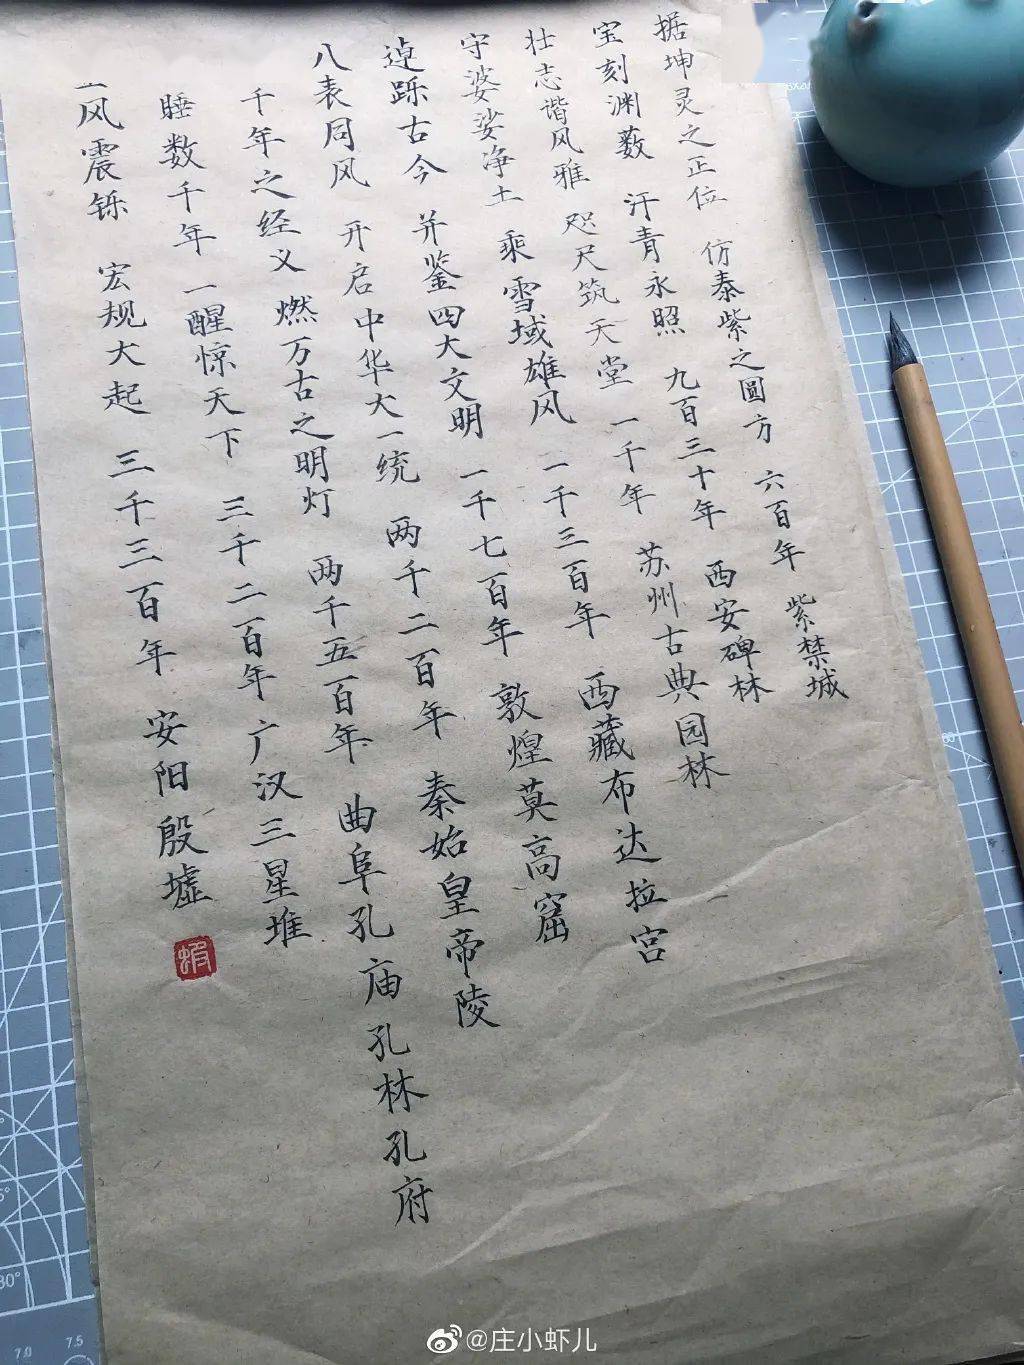 据坤灵之正位 仿泰紫之圆方 六百年 紫禁城
宝刻渊薮 汗青永照 九百三十年 西安碑林
壮志谐风雅 咫尺筑天堂 一千年 苏州古典园林
守婆娑净土 乘雪域雄风 一千三百年 西藏布达拉宫
逴跞古今 并鉴四大文明 一千七百年 敦煌莫高窟
八表同风 开启中华大一统 两千二百年 秦始皇帝陵
千年之经义 燃万古之明灯 两千五百年 曲阜孔庙孔林孔府
睡数千年 一醒惊天下 三千二百年 广汉三星堆
风震铄 宏规大起 三千三百年 安阳殷墟
虾
@庄小虾儿
7.0 7.5